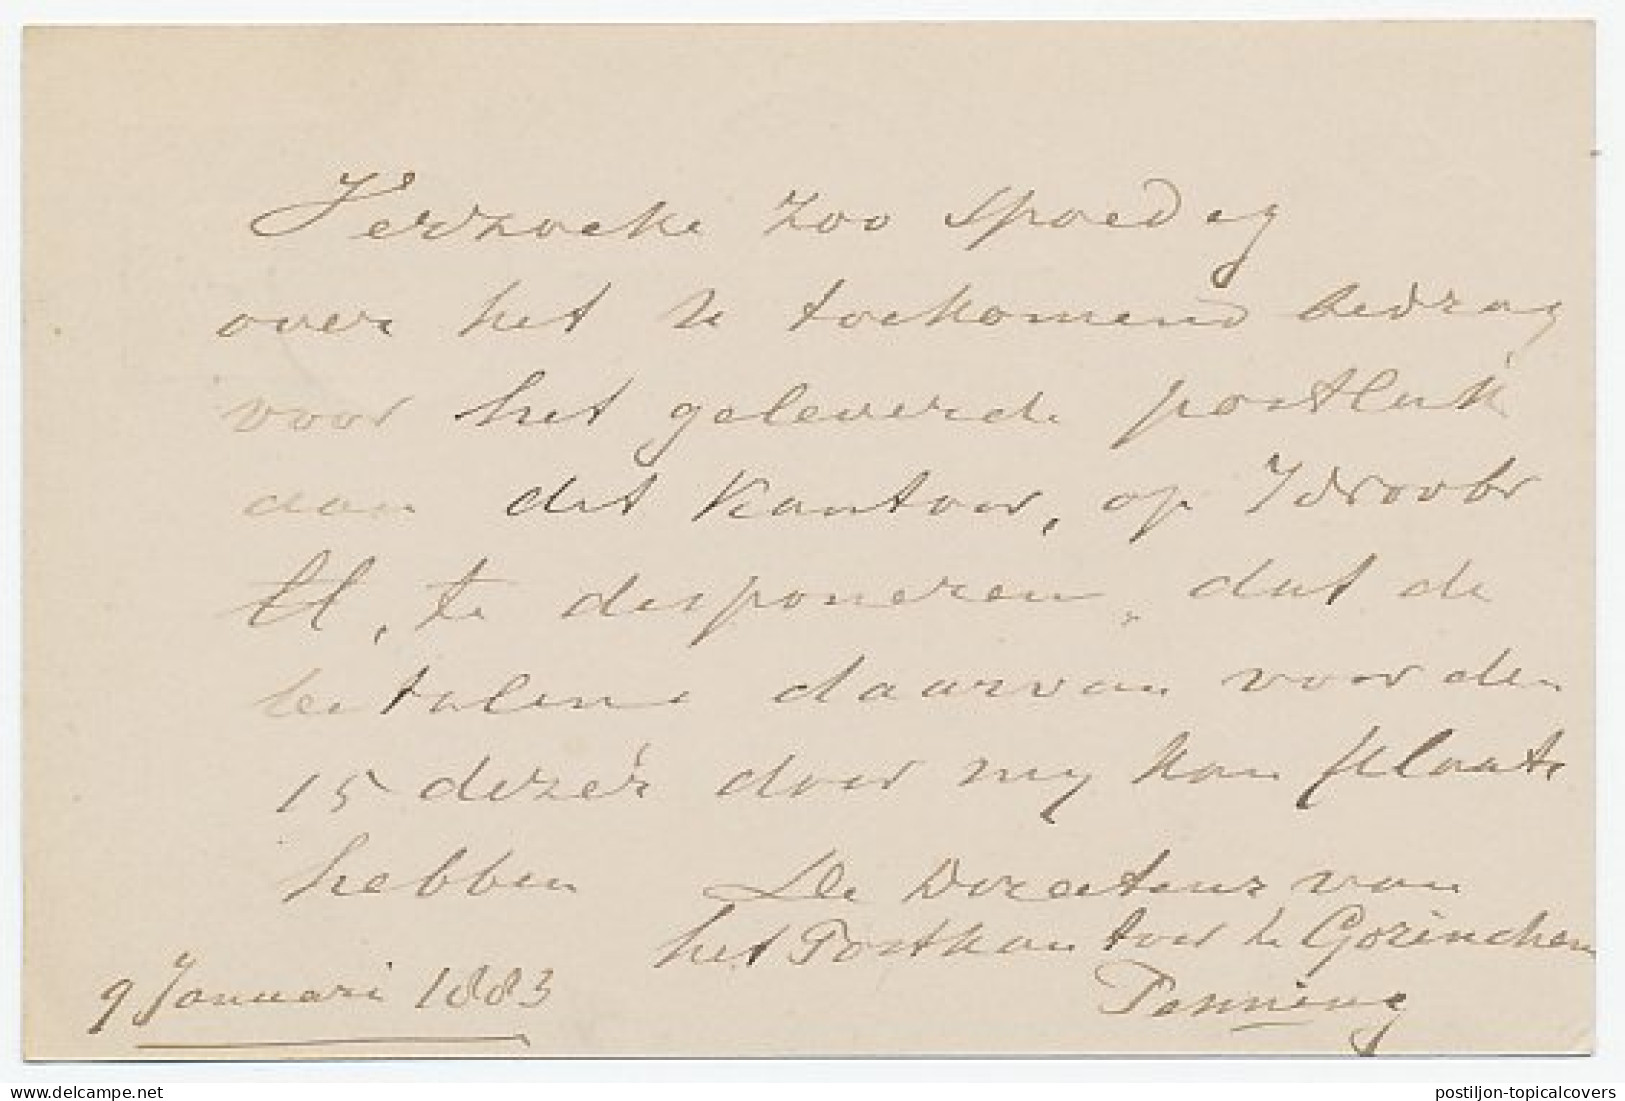 Verzoeke zoo spoedig
over het U toekomend bedrag
voor het geleverde
aan dit Kantoor, op
te disponeren, dat de
betaling daarvan voor den
15 dezer door my kan plaats
hebben De Directeur van
het Postkantoor te Gorinchem
9 Januari 1883
Penning
postzegelbeurs-delcampe.net
postiljon-topicalcovers